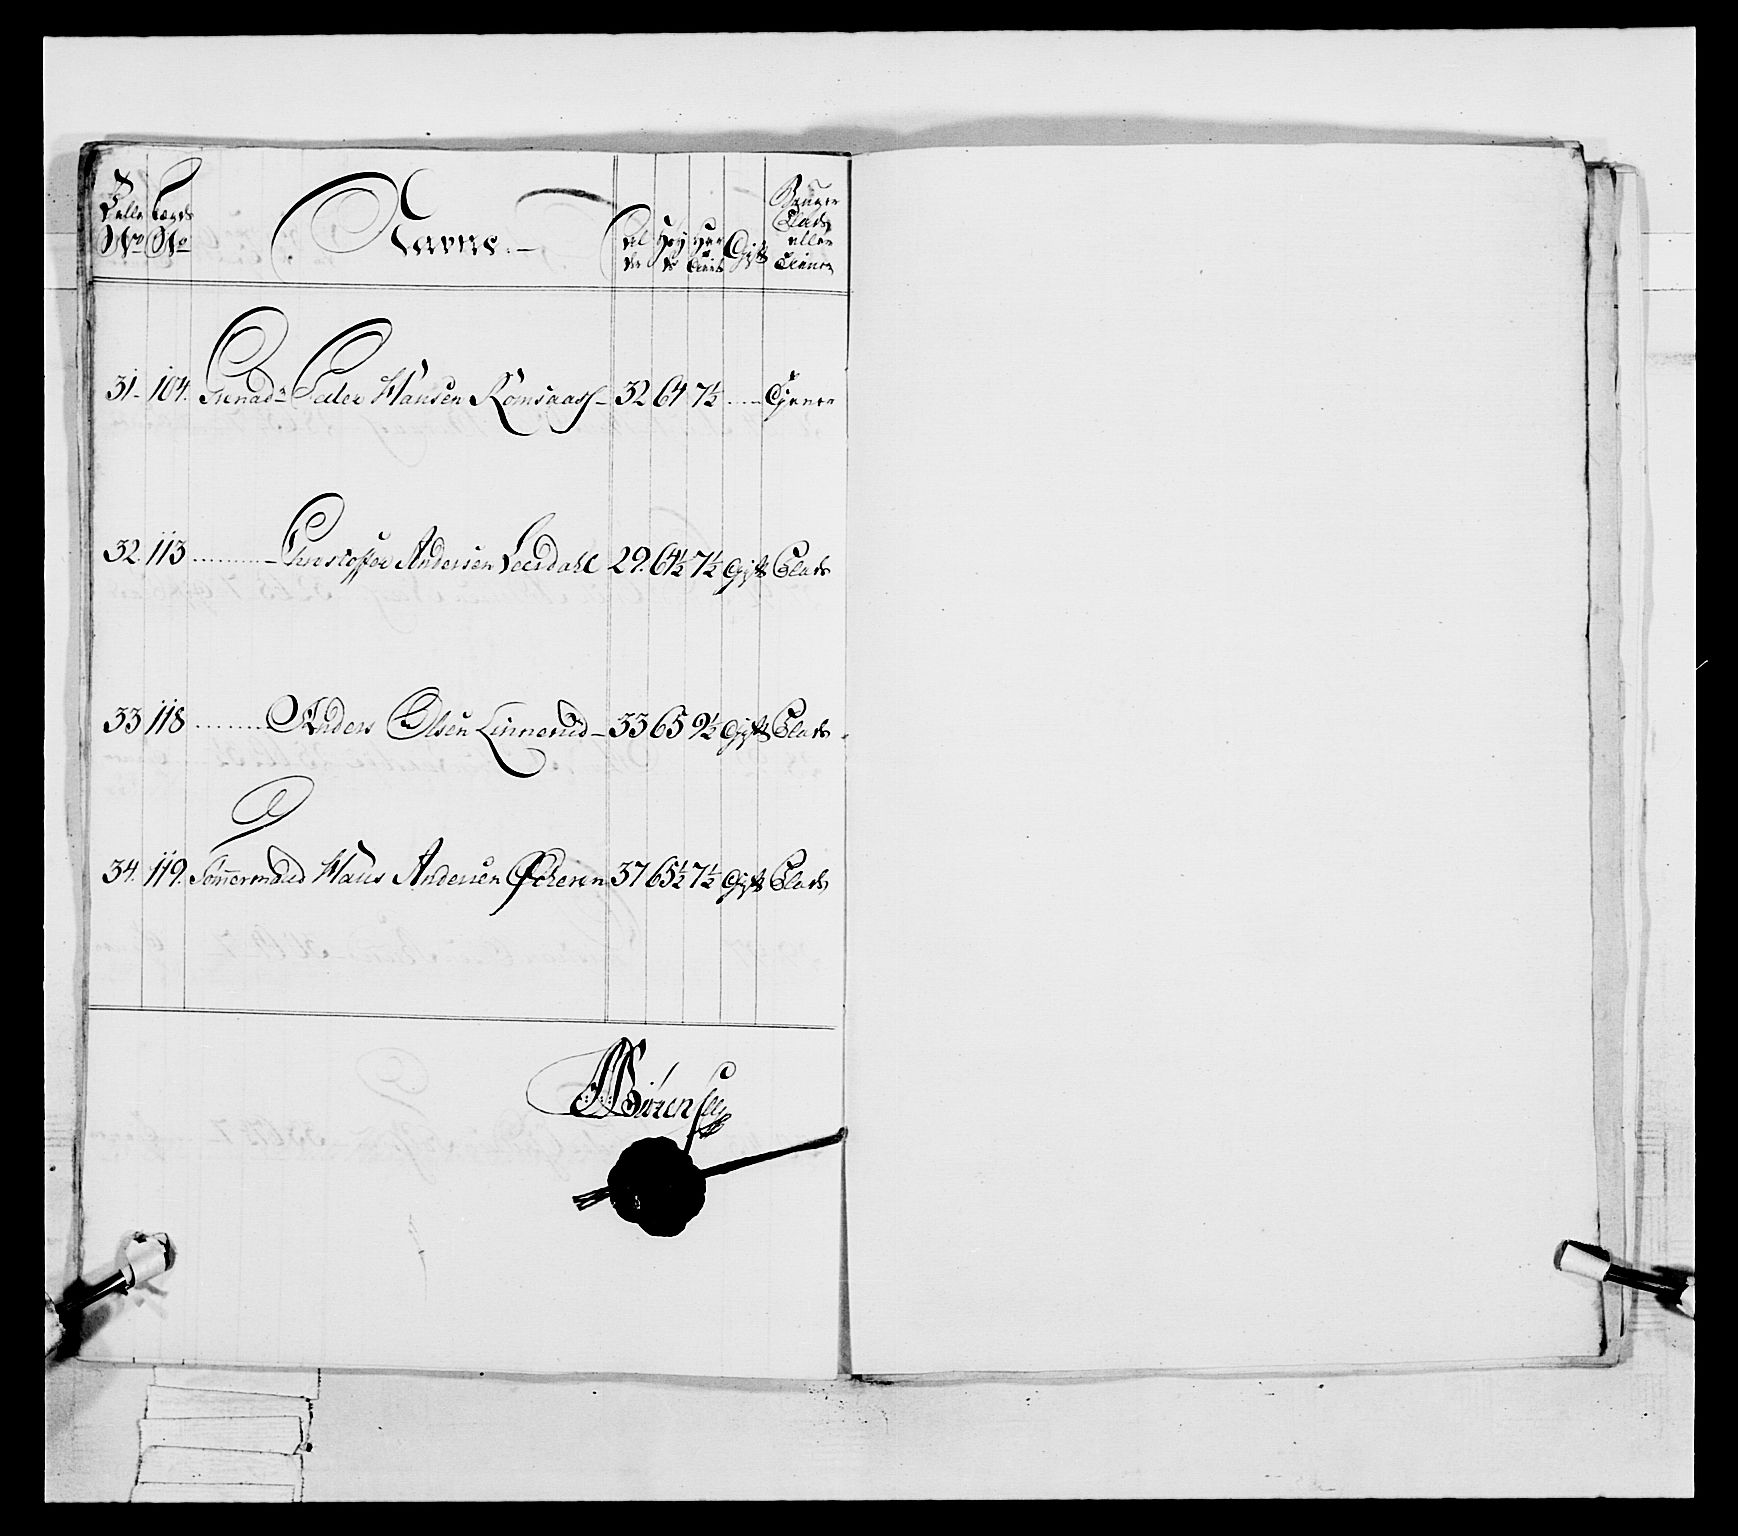 Rulle No Lægds No Navne.— Alder Høyde Har tient Gift Bruger Plads eller Tiener
31. 104. Grenadr Peder Hansen Romsaas – 32 64 7½ .... Tjener
32. 113 .......... – Christoffer Andersen Leerdahl 29. 64½ 7½ Gift Plads
33 118 .......... Anders Olsen Linnerud – 33 65 9½ Gift Plads
34. 119. Tømmermand Hans Andersen Øcheren 37 65½ 7½ Gift Plads